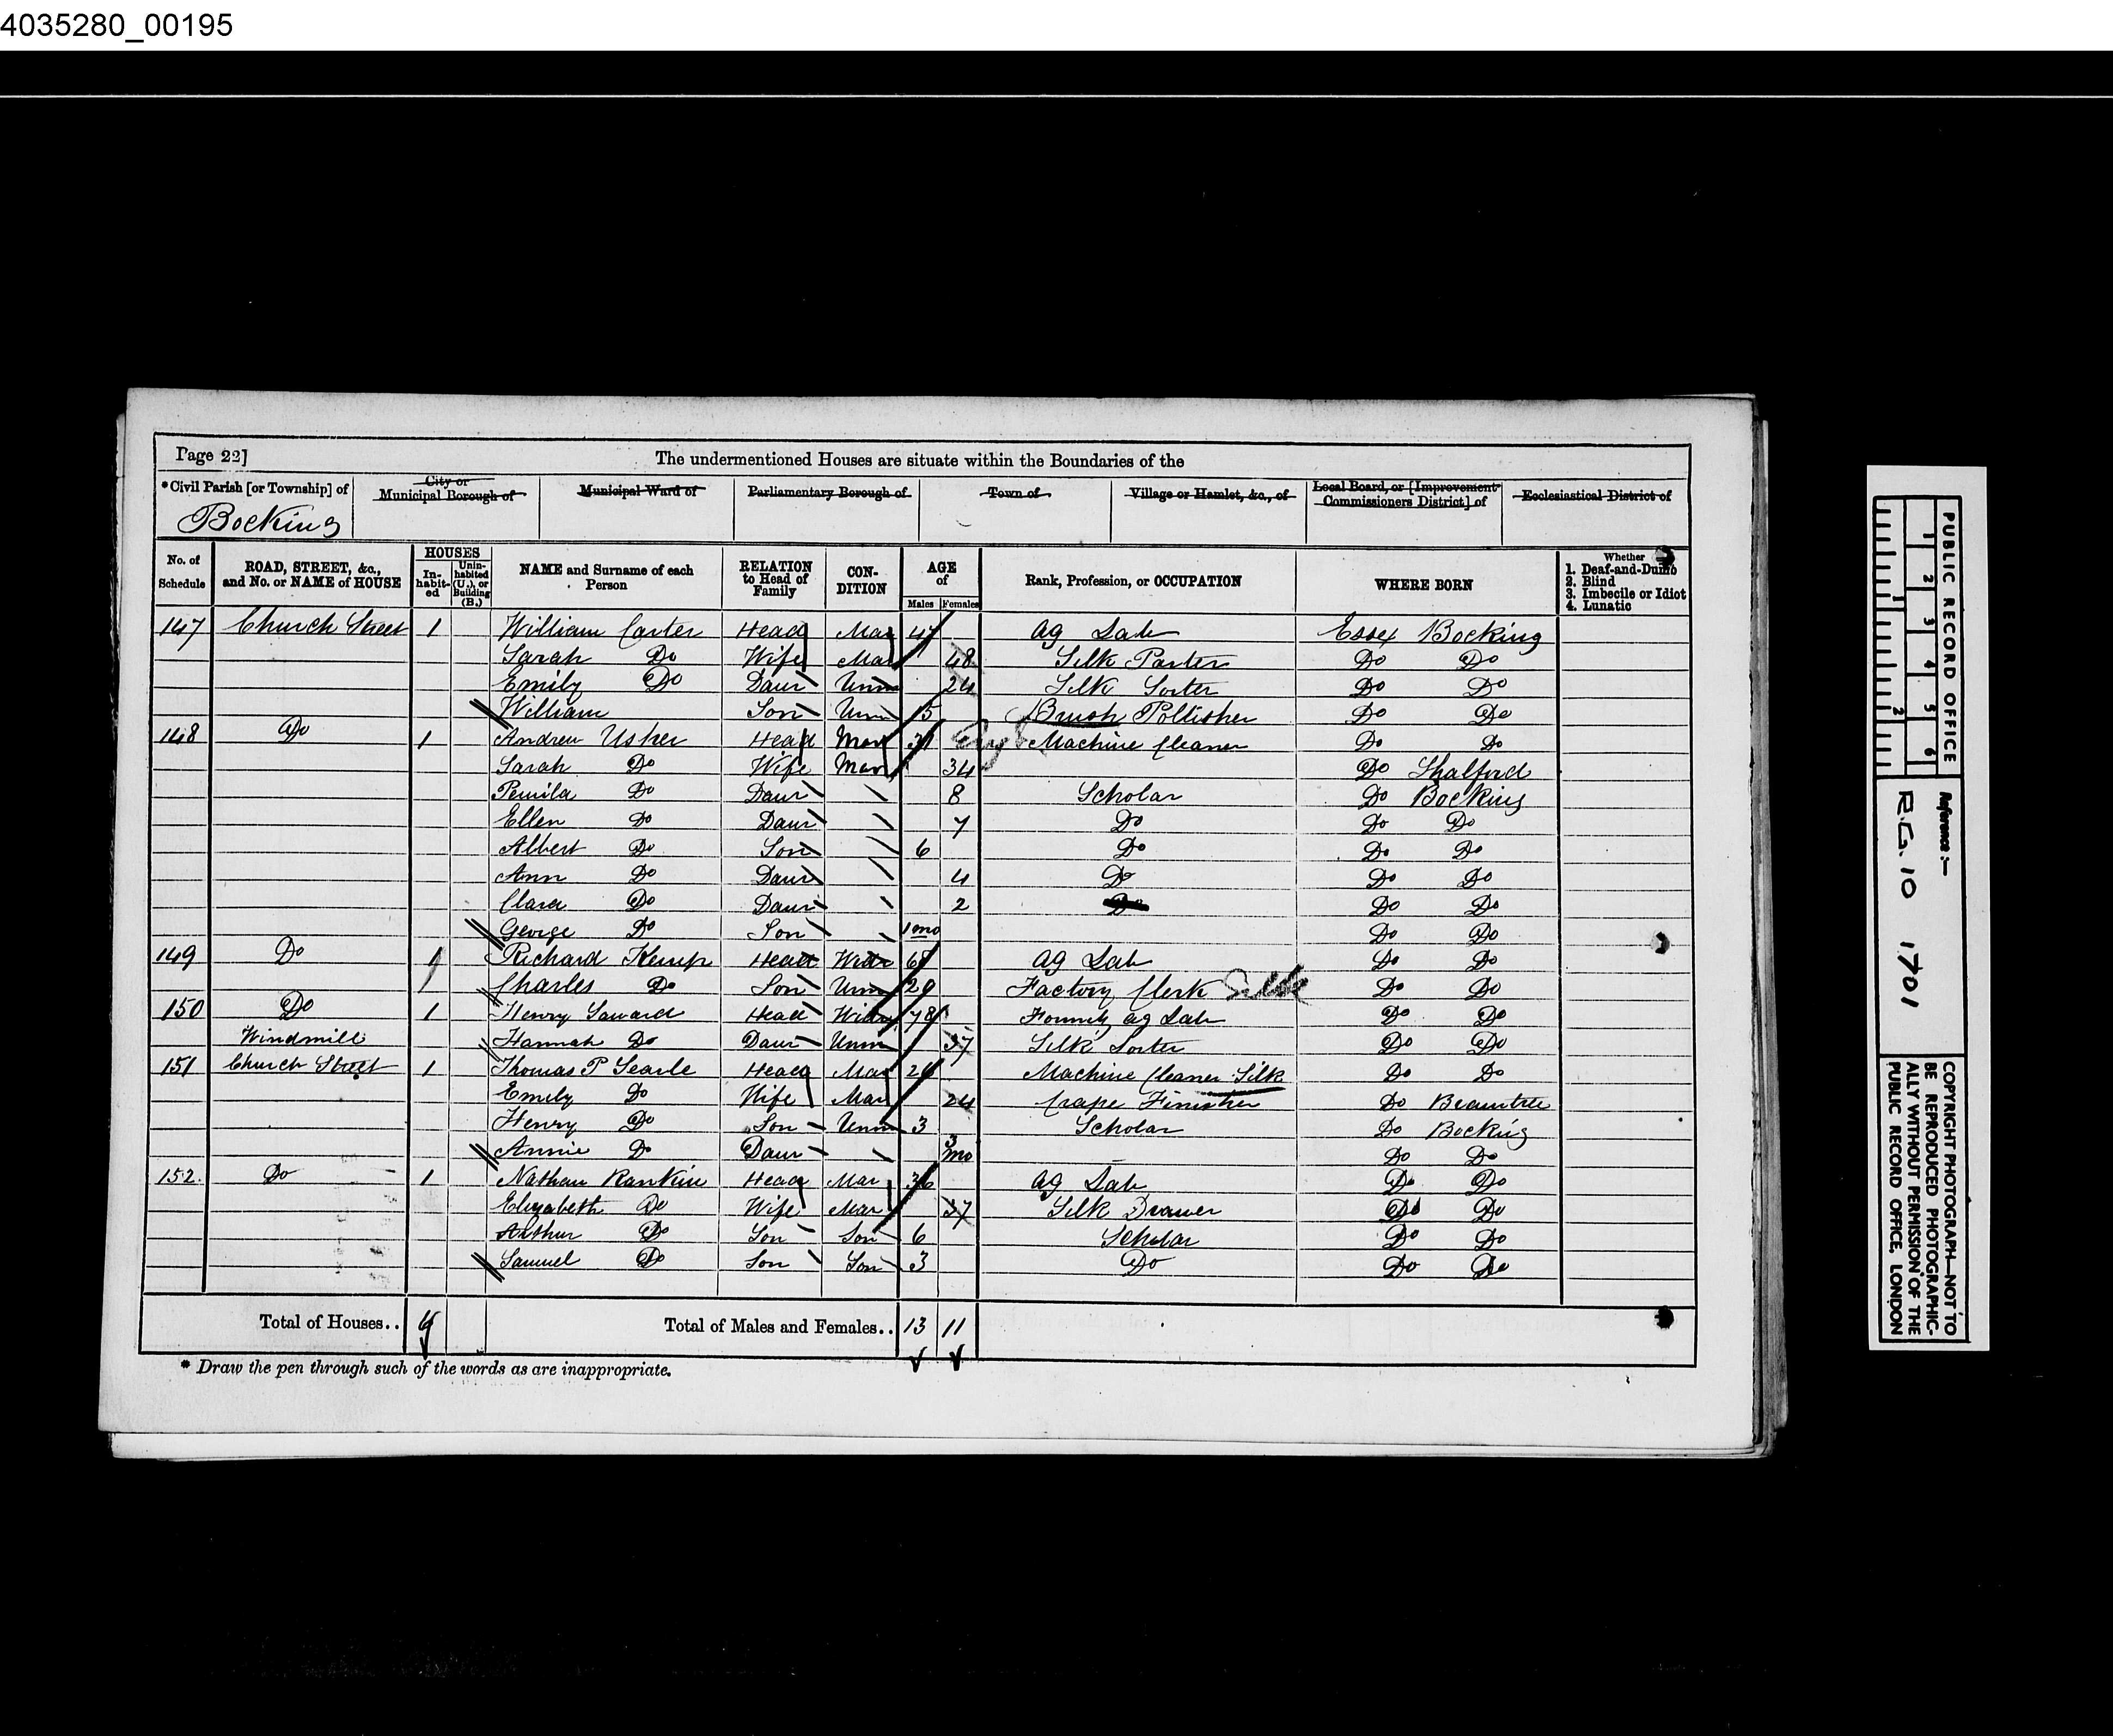 4035280_00195
Page 22]
The undermentioned Houses are situate within the Boundaries of the
*Civil Parish [or Township] of
City or Municipal Borough of
Municipal Ward of
Parliamentary Borough of
Town of
Village or Hamlet, &c., of
Local Board, or [Improvement Commissioners District] of
Ecclesiastical District of
Bocking
No. of Schedule
ROAD, STREET, &c., and No. or NAME of HOUSE
HOUSES
In-habit-ed
Unin-habited (U.), or Building (B.)
NAME and Surname of each Person
RELATION to Head of Family
CON-DITION
AGE of
Males Females
Rank, Profession, or OCCUPATION
WHERE BORN
Whether
1. Deaf-and-Dumb
2. Blind
3. Imbecile or Idiot
4. Lunatic
147 Church Street 1 William Carter Head Mar 47 Ag Lab Essex Bocking
Sarah Do Wife Mar 48 Silk Parter Do Do
Emily Do Daur Unm 24 Silk Sorter Do Do
William Son Unm 15 Brush Pollisher Do Do
148 Do 1 Andrew Usher Head Mar 31 Machine Cleaner Do Do
Sarah Do Wife Mar 34 Do Shalford
Pemila Do Daur 8 Scholar Do Bocking
Ellen Do Daur 7 Do Do Do
Albert Do Son 6 Do Do Do
Ann Do Daur 4 Do Do Do
Clara Do Daur 2 Do Do Do
George Do Son 1 mo Do Do
149 Do 1 Richard Kemp Head Widr Ag Lab Do Do
Charles Do Son Unm 29 Factory Clerk Silk Do Do
150 Do 1 Henry Saward Head Widr 78 Formerly ag Lab Do Do
Windmill Hannah Do Daur Unm 37 Silk Sorter Do Do
151 Church Street 1 Thomas P Searle Head Mar Machine Cleaner Silk Do Do
Emily Do Wife Mar 24 Crape Finisher Do Braintree
Henry Do Son Unm 3 Scholar Do Bocking
Annie Do Daur 3 mo Do Do
152. Do 1 Nathan Rankin Head Mar 36 Ag Lab Do Do
Elizabeth Do Wife Mar 37 Silk Drawer Do Do
Arthur Do Son Son 6 Scholar Do Do
Samuel Do Son Son 3 Do Do Do
Total of Houses.. Total of Males and Females.. 13 11
* Draw the pen through such of the words as are inappropriate.
PUBLIC RECORD OFFICE
1 2 3 4 5 6
1 2
Reference :—
R.G. 10 1701
COPYRIGHT PHOTOGRAPH—NOT TO
BE REPRODUCED PHOTOGRAPHIC-
ALLY WITHOUT PERMISSION OF THE
PUBLIC RECORD OFFICE, LONDON